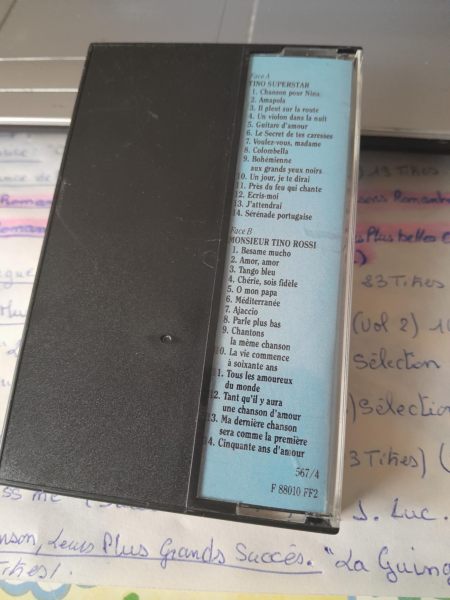 Face A
TINO SUPERSTAR
1. Chanson pour Nina
2. Amapola
3. Il pleut sur la route
4. Un violon dans la nuit
5. Guitare d'amour
6. Le Secret de tes caresses
7. Voulez-vous, madame
8. Colombella
9. Bohémienne
aux grands yeux noirs
10. Un jour, je te dirai
11. Près du feu qui chante
12. Ecris-moi
13. J'attendrai
14. Sérénade portugaise
Face B
MONSIEUR TINO ROSSI
1. Besame mucho
2. Amor, amor
3. Tango bleu
4. Chérie, sois fidèle
5. O mon papa
6. Méditerranée
7. Ajaccio
8. Parle plus bas
9. Chantons
la même chanson
10. La vie commence
à soixante ans
11. Tous les amoureux
du monde
12. Tant qu'il y aura
une chanson d'amour
13. Ma dernière chanson
sera comme la première
14. Cinquante ans d'amour
567/4
F 88010 FF2
13 Titres
Plus belles
23 Titres
(Vol 2)
Sélection
Sélection
3 Titres) (
J. Luc.
Leurs Plus Grands Succès. "La Guing
Titres).